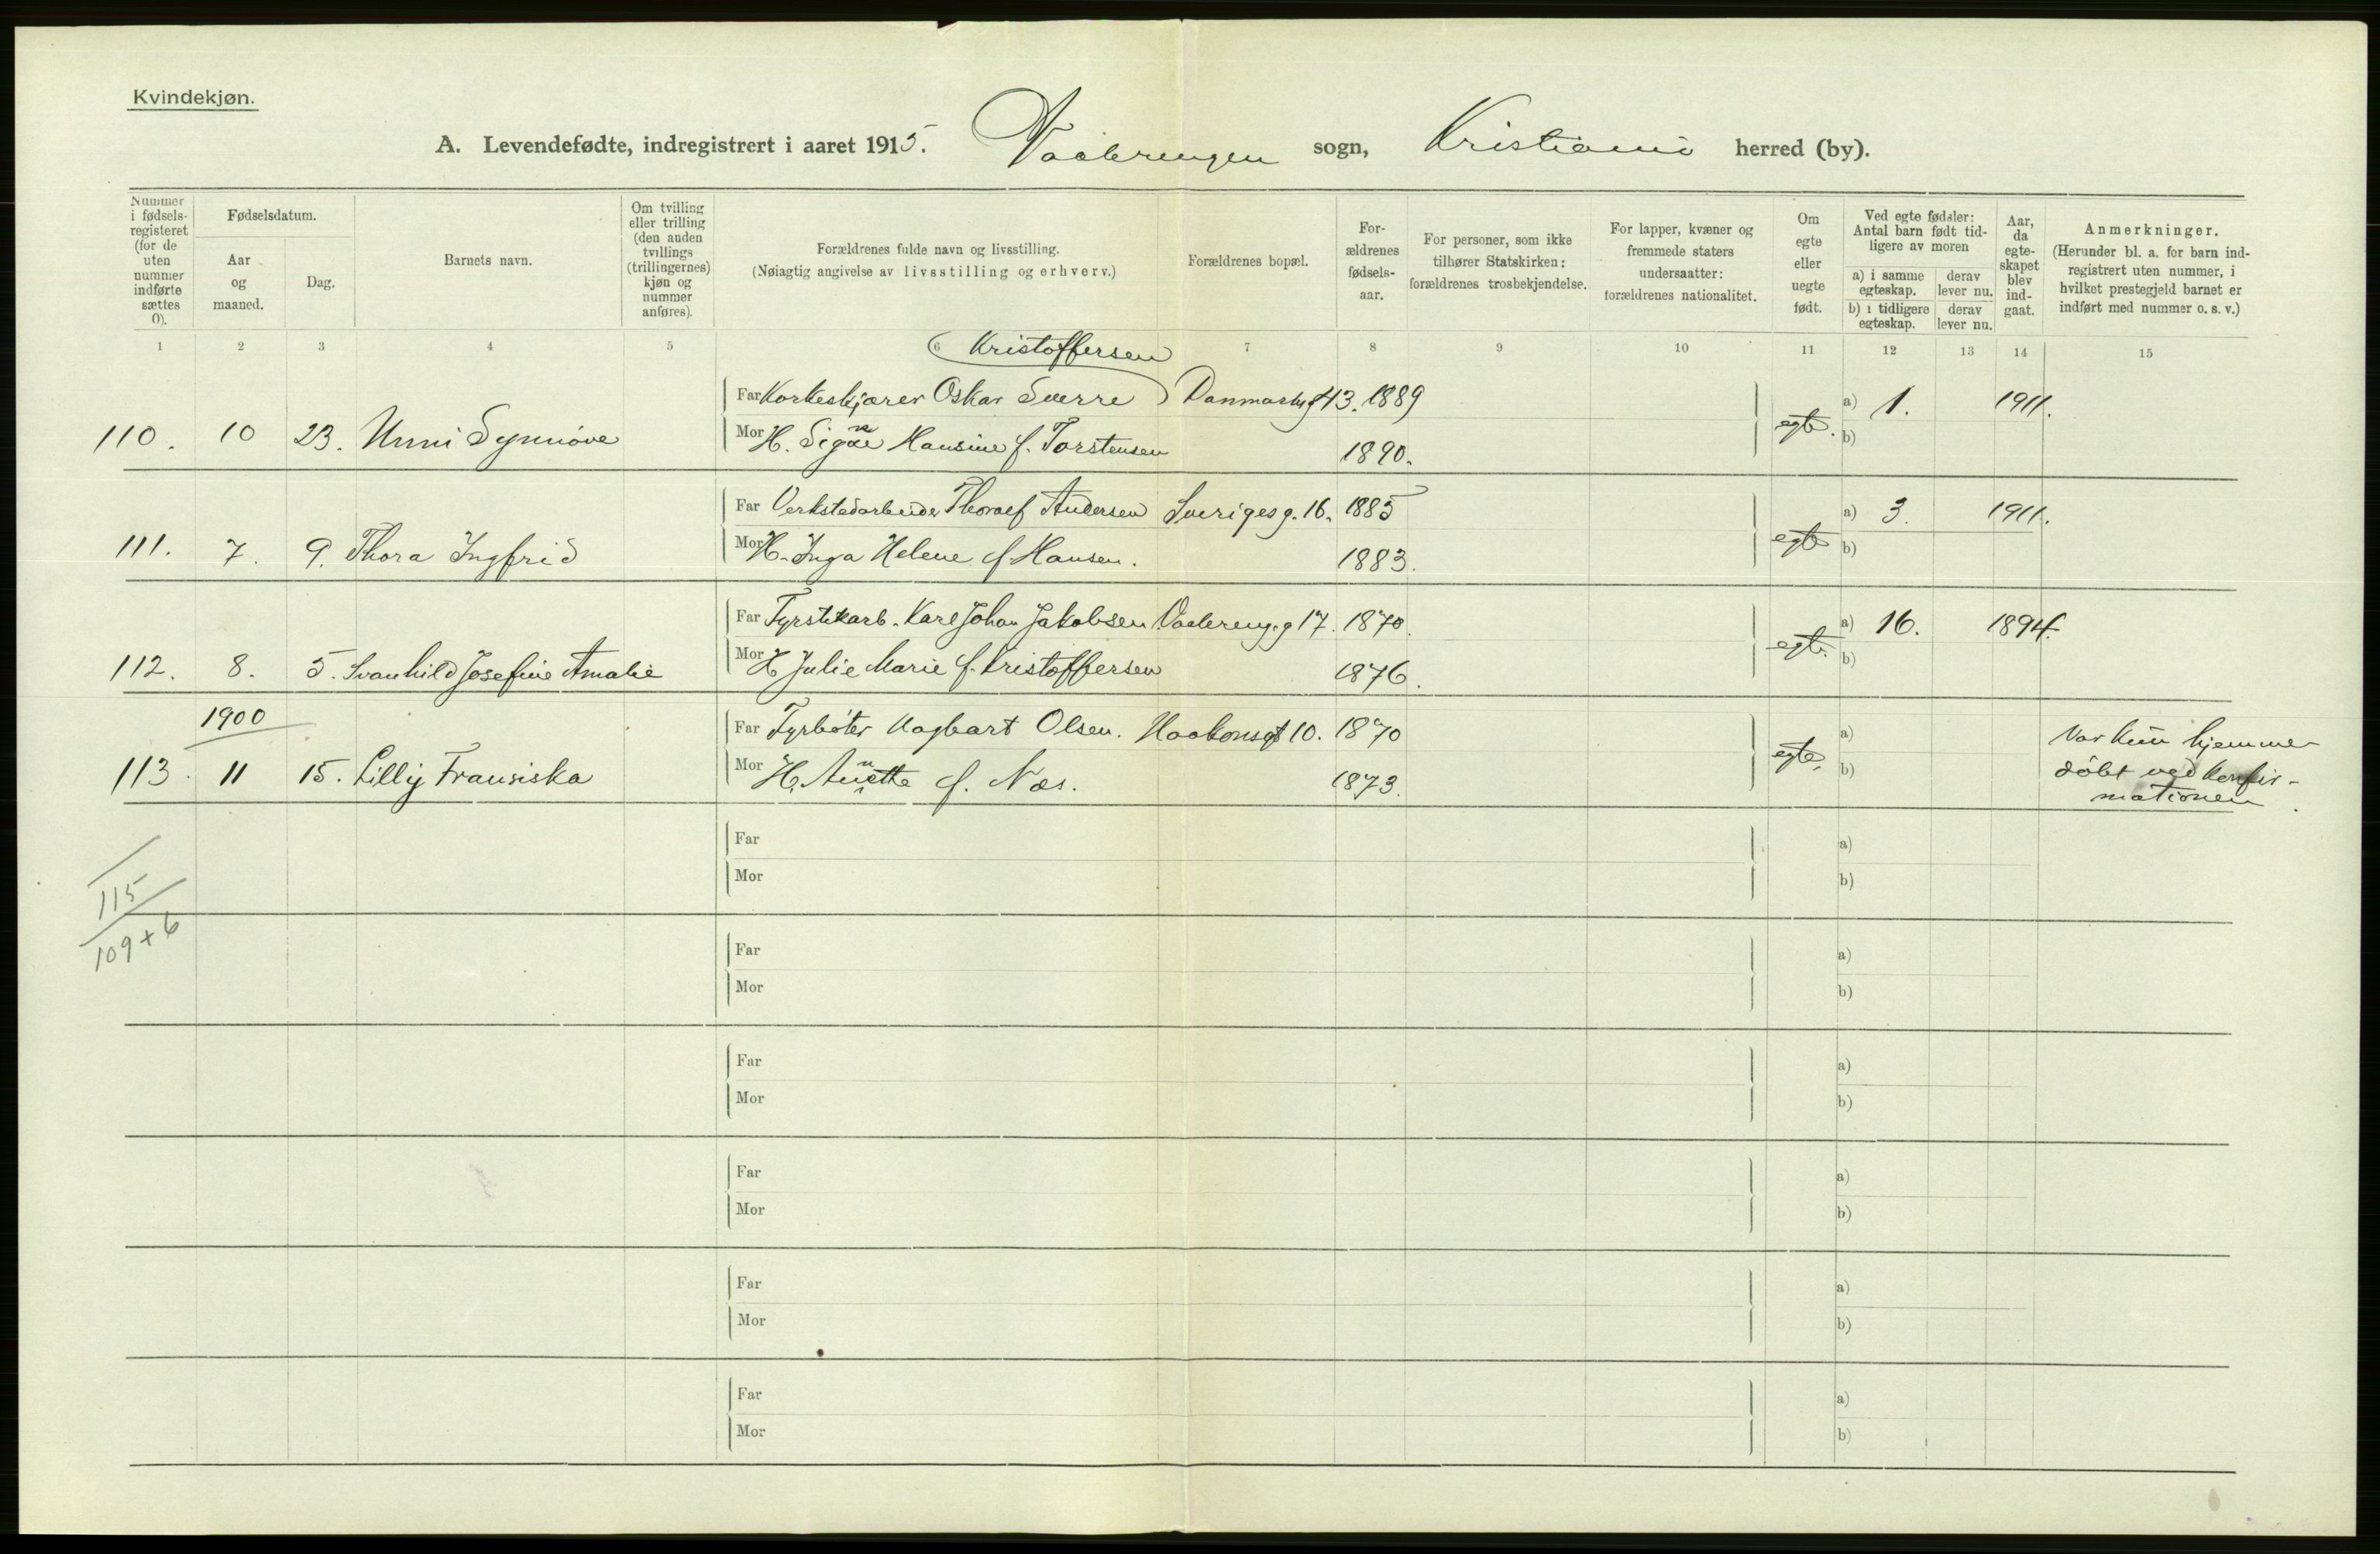 Kvindekjøn.
A. Levendefødte, indregistrert i aaret 1915. Vaalerengen sogn, Kristiania herred (by).
Nummer i fødsels-registeret (for de uten nummer indførte sættes 0).
Fødselsdatum.
Aar og maaned.
Dag.
Barnets navn.
Om tvilling eller trilling (den anden tvillings (trillingernes) kjøn og nummer anføres).
Forældrenes fulde navn og livsstilling.
(Nøiagtig angivelse av livsstilling og erhverv.)
Forældrenes bopæl.
For-ældrenes fødsels-aar.
For personer, som ikke tilhører Statskirken: forældrenes trosbekjendelse.
For lapper, kvæner og fremmede staters undersaatter: forældrenes nationalitet.
Om egte eller uegte født.
Ved egte fødsler: Antal barn født tid-ligere av moren
a) i samme egteskap.
derav lever nu.
b) i tidligere egteskap.
derav lever nu.
Aar, da egte-skapet blev ind-gaat.
Anmerkninger.
(Herunder bl. a. for barn ind-registrert uten nummer, i hvilket prestegjeld barnet er indført med nummer o. s. v.)
1 2 3 4 5 6 7 8 9 10 11 12 13 14 15
Kristoffersen
Far Korkeskjærer Oskar Sverre Danmarksg 43. 1889 a) 1. 1911.
110. 10 23. Unni Synnöve Mor H. Signe Hansine f. Torstensen 1890. egte. b)
Far Verkstedarbeider Thoralf Andersen Sverigesg. 16. 1885 a) 3. 1911.
111. 7. 9. Thora Ingfrid Mor H. Inga Helene f. Hansen. 1883. egte b)
Far Fyrstikarb. Karl Johan Jakobsen Vaalereng.g 17. 1870. a) 16. 1894.
112. 8. 5. Svanhild Josefine Amalie Mor H Julie Marie f. Kristoffersen 1876. egte. b)
1900
Far Fyrböter Hagbart Olsen. Haakonsgt 10. 1870 a) Var kun hjemme-
113. 11 15. Lilly Fransiska Mor H. Anette f. Næs. 1873. egte. b) döbt ved konfir-
mationen.
Far a)
Mor b)
115
109 + 6
Far a)
Mor b)
Far a)
Mor b)
Far a)
Mor b)
Far a)
Mor b)
Far a)
Mor b)